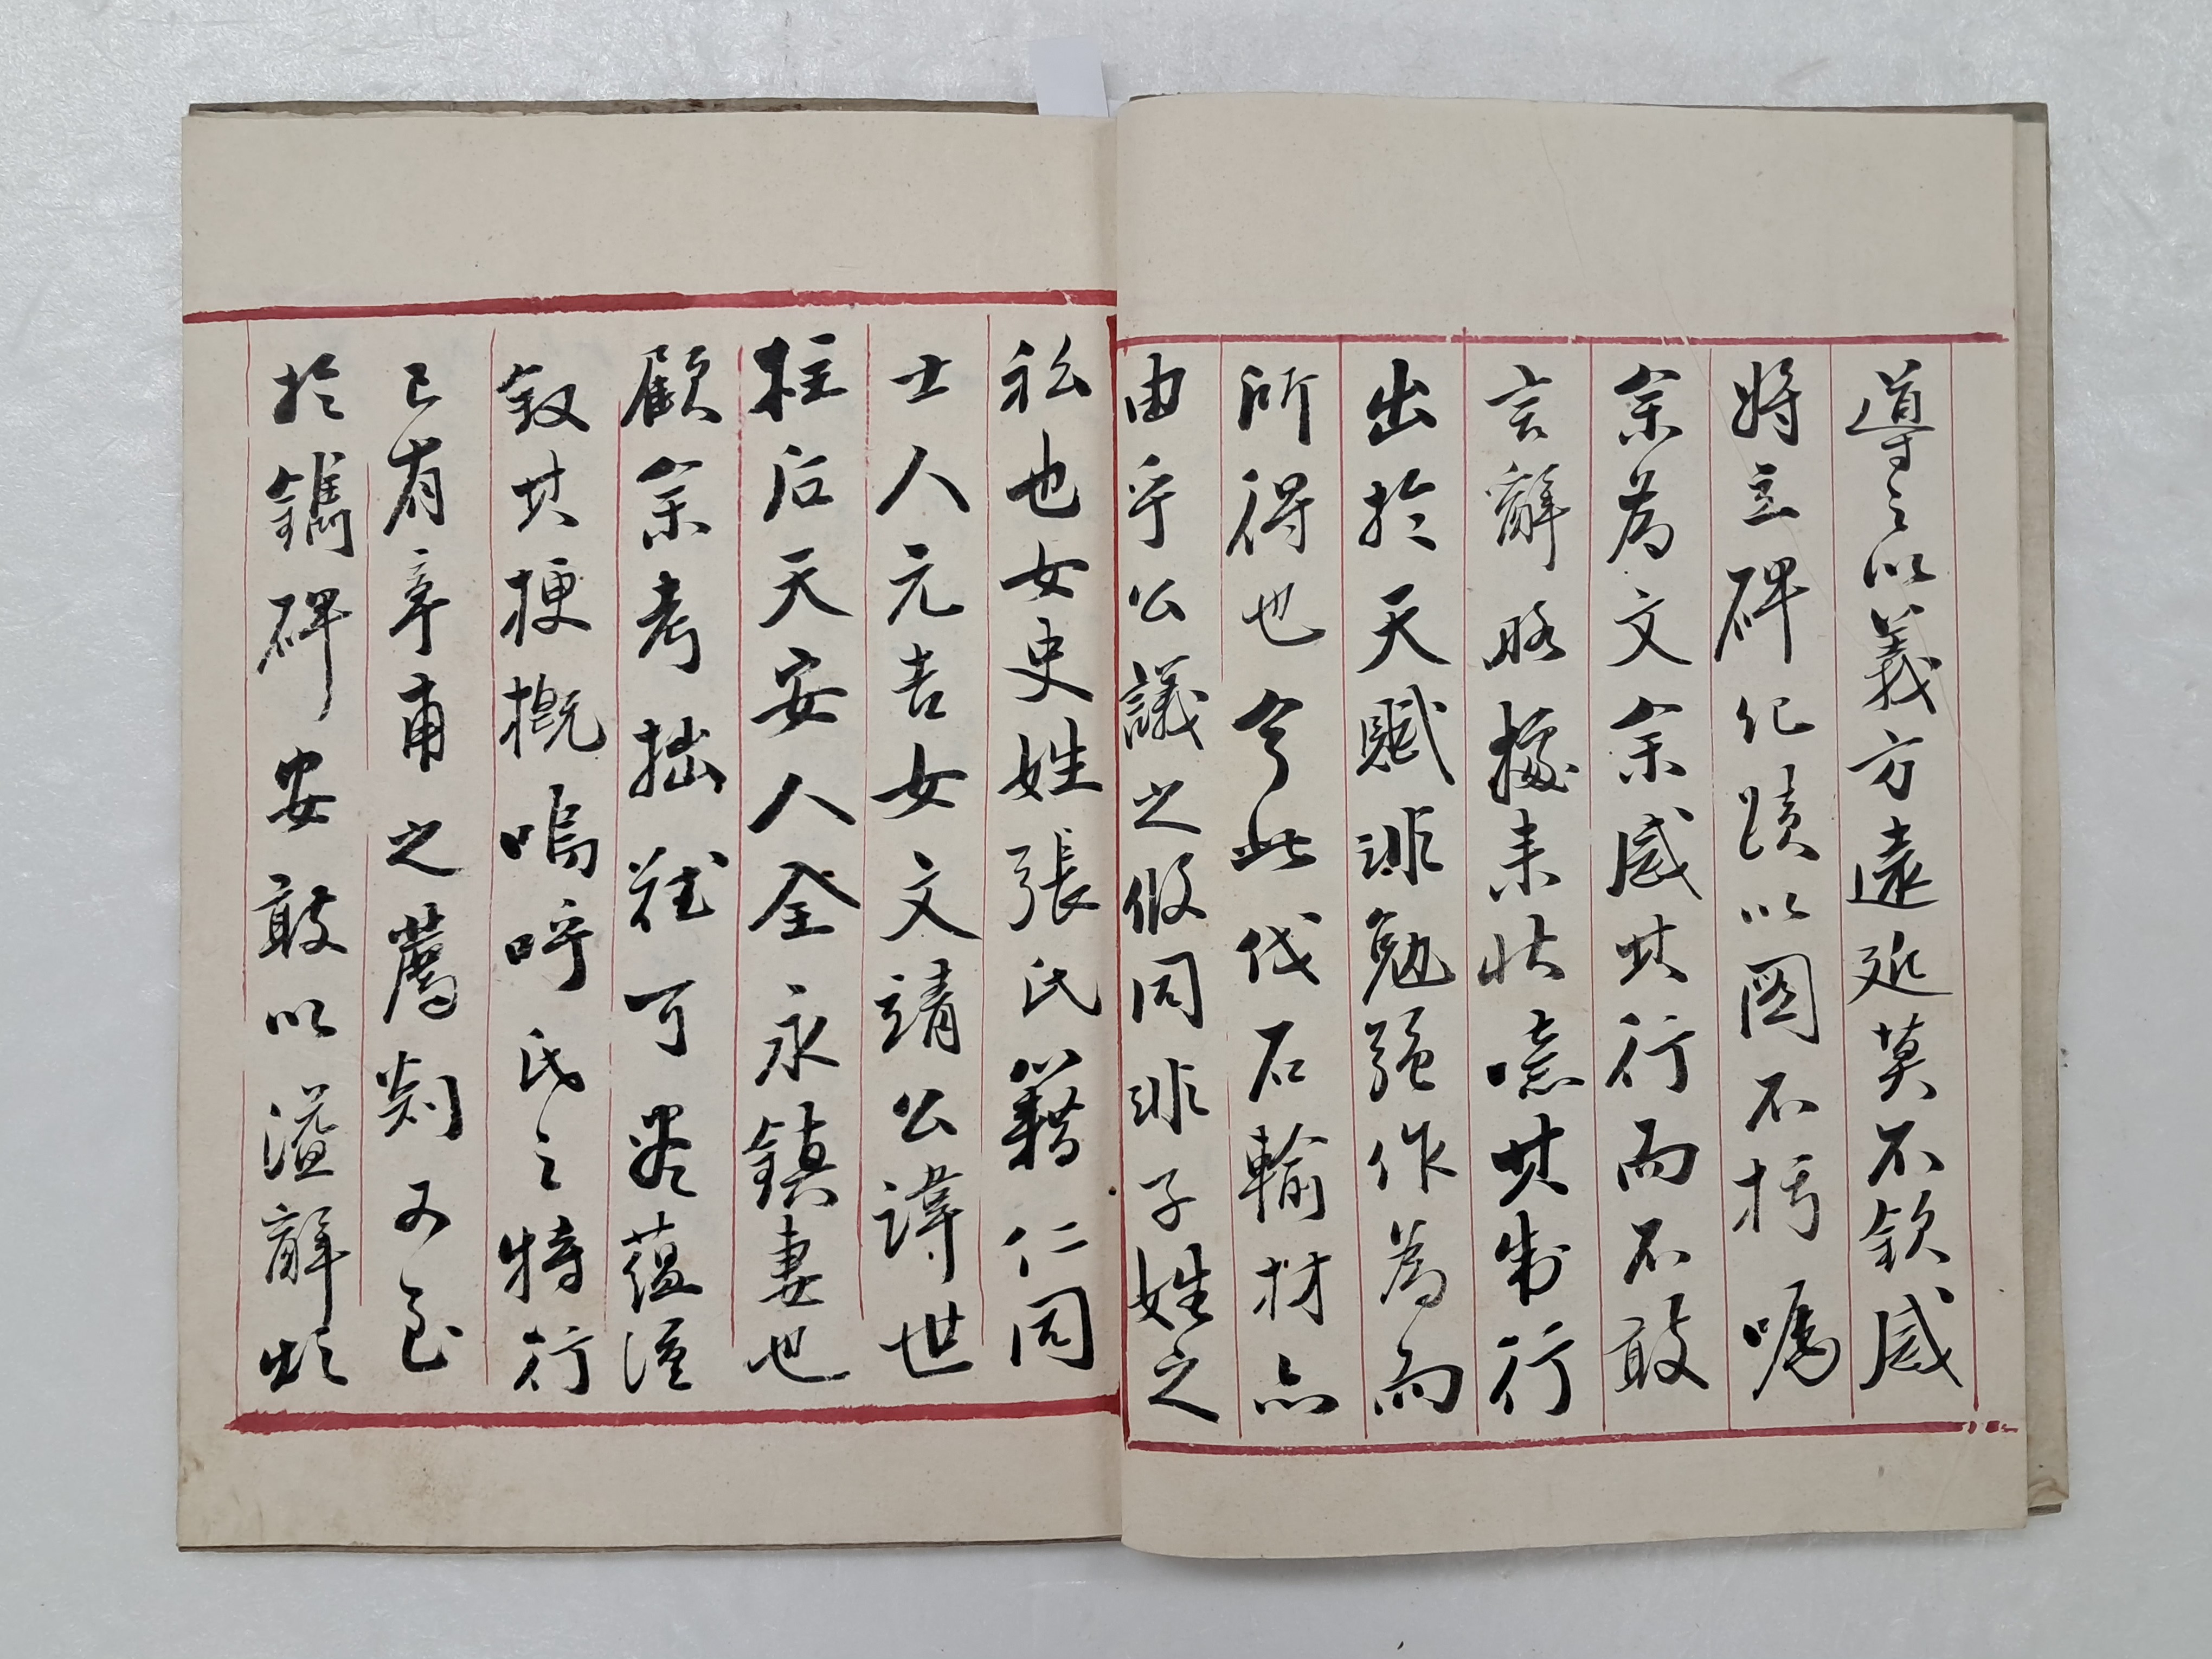 導之以義方遠近莫不欽感
將立碑紀蹟以圖不朽囑
余為文余感其行而不敢
言辭略據来狀噫其制行
出於天賦非勉强作為而
所得也今此伐石輸材亦
由乎公議之攸同非子姓之
私也女史姓張氏籍仁同
士人元吉女文靖公諱世
柱后天安人全永鎮妻也
顧余耇拙雖可盡蘊謹
叙其梗槪嗚呼氏之特行
已有章甫之薦剡又至
於鐫碑安敢以溢辭